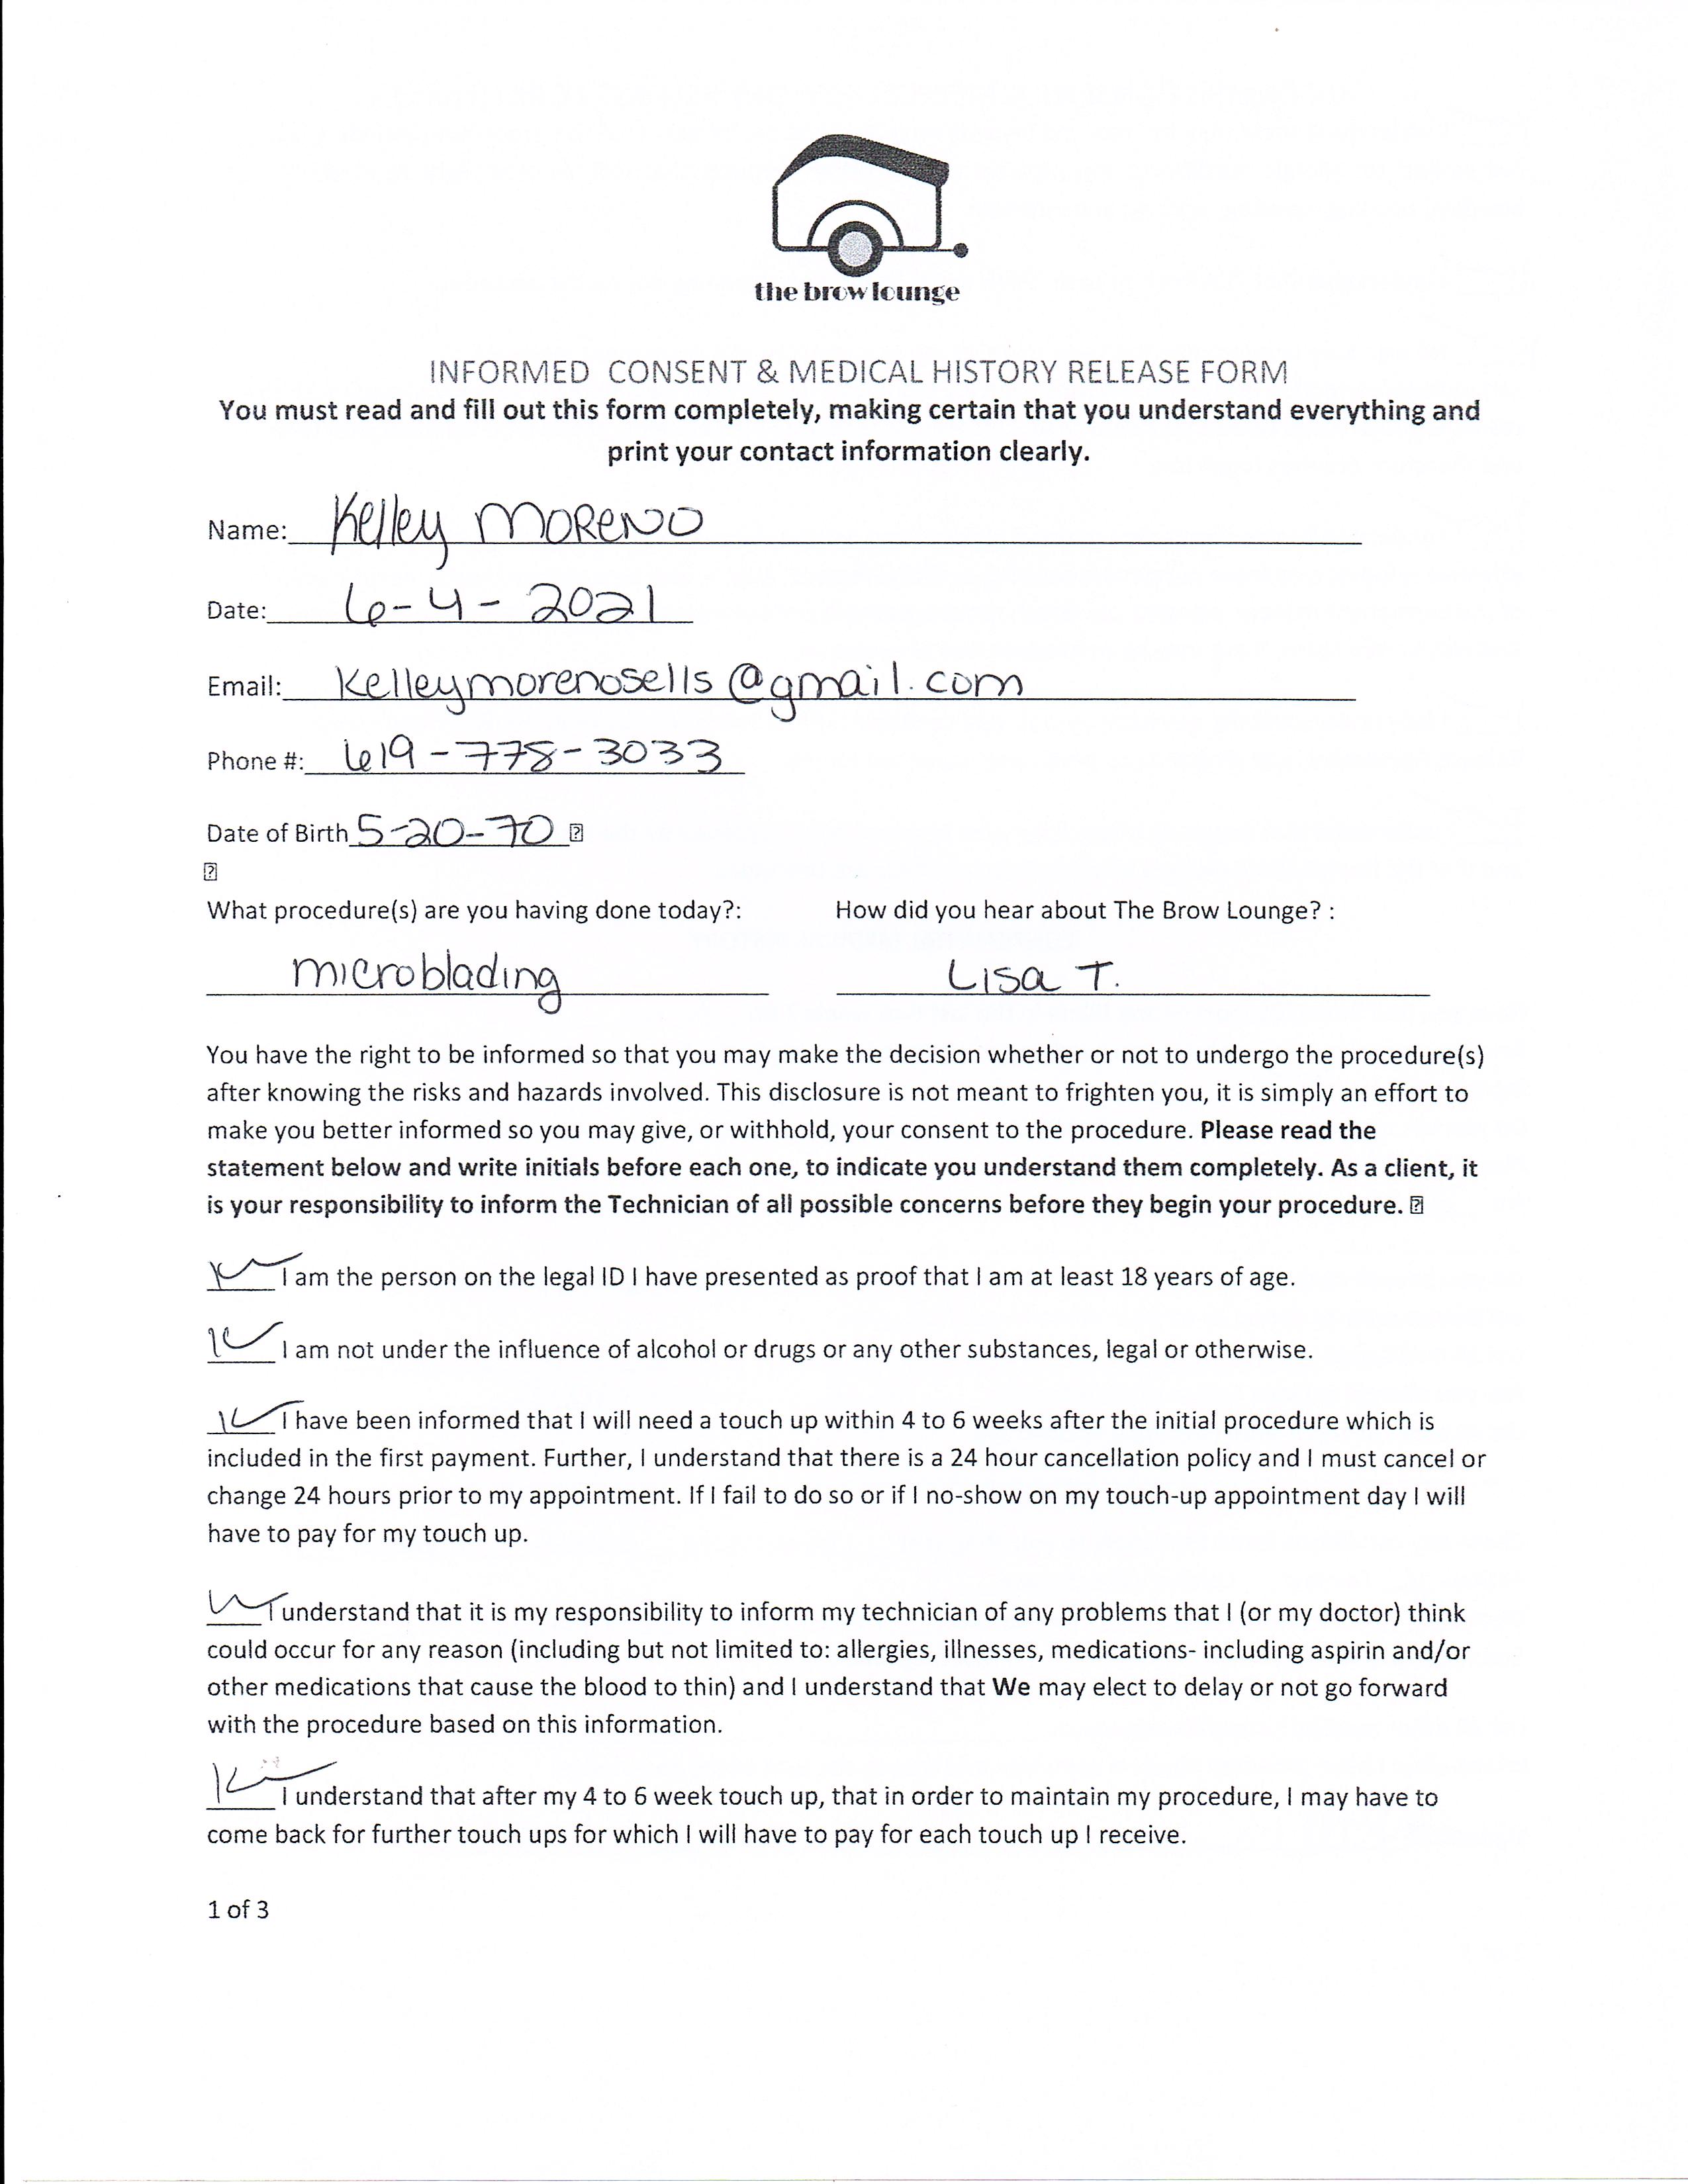 the brow lounge
INFORMED CONSENT & MEDICAL HISTORY RELEASE FORM
You must read and fill out this form completely, making certain that you understand everything and
print your contact information clearly.
Name: Kelley Moreno
Date: 6-4-2021
Email: kelleymorenosells@gmail.com
Phone #: 619-778-3033
Date of Birth 5-20-70
What procedure(s) are you having done today?: How did you hear about The Brow Lounge? :
microblading Lisa T.
You have the right to be informed so that you may make the decision whether or not to undergo the procedure(s)
after knowing the risks and hazards involved. This disclosure is not meant to frighten you, it is simply an effort to
make you better informed so you may give, or withhold, your consent to the procedure. Please read the
statement below and write initials before each one, to indicate you understand them completely. As a client, it
is your responsibility to inform the Technician of all possible concerns before they begin your procedure.
I am the person on the legal ID I have presented as proof that I am at least 18 years of age.
I am not under the influence of alcohol or drugs or any other substances, legal or otherwise.
I have been informed that I will need a touch up within 4 to 6 weeks after the initial procedure which is
included in the first payment. Further, I understand that there is a 24 hour cancellation policy and I must cancel or
change 24 hours prior to my appointment. If I fail to do so or if I no-show on my touch-up appointment day I will
have to pay for my touch up.
I understand that it is my responsibility to inform my technician of any problems that I (or my doctor) think
could occur for any reason (including but not limited to: allergies, illnesses, medications- including aspirin and/or
other medications that cause the blood to thin) and I understand that We may elect to delay or not go forward
with the procedure based on this information.
I understand that after my 4 to 6 week touch up, that in order to maintain my procedure, I may have to
come back for further touch ups for which I will have to pay for each touch up I receive.
1 of 3